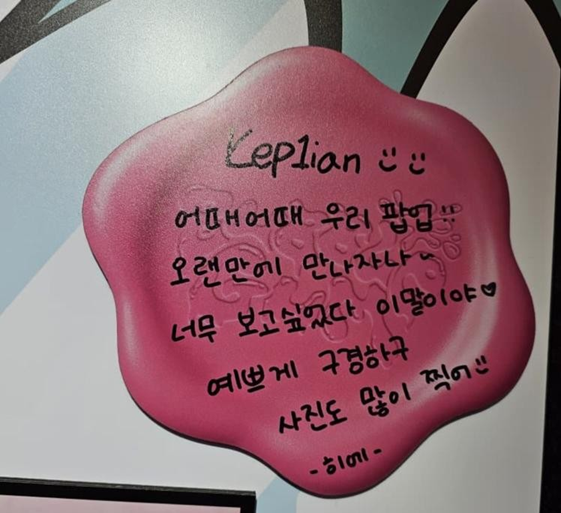 Kep1ian :) :)
어때어때 우리 팝업 :)
오랜만에 만나자나~
너무 보고싶었다 이말이야♥
예쁘게 구경하구
사진도 많이 찍어 :)
-히에-